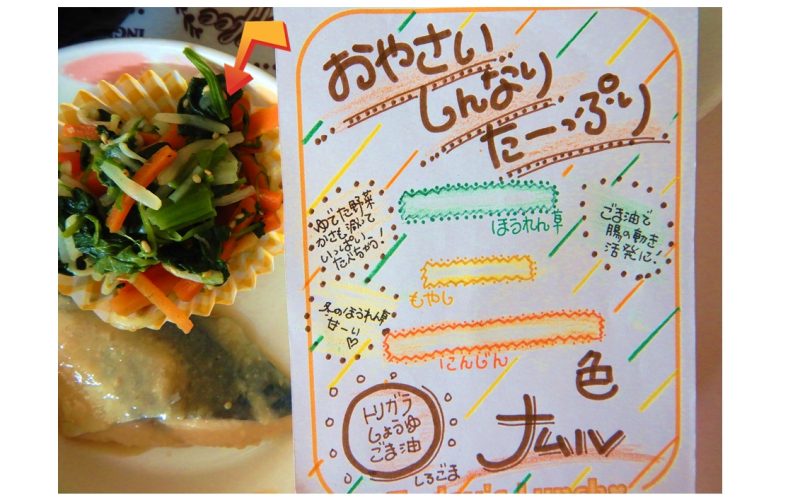 おやさい
しんなり
たーっぷり
ゆでた野菜
かさも減って
いっぱい
たべちゃう!
ほうれん草
ごま油で
腸の動き
活発に!
もやし
冬のほうれん草
甘ーい
にんじん
色
ナムル
トリガラ
しょうゆ
ごま油
しろごま